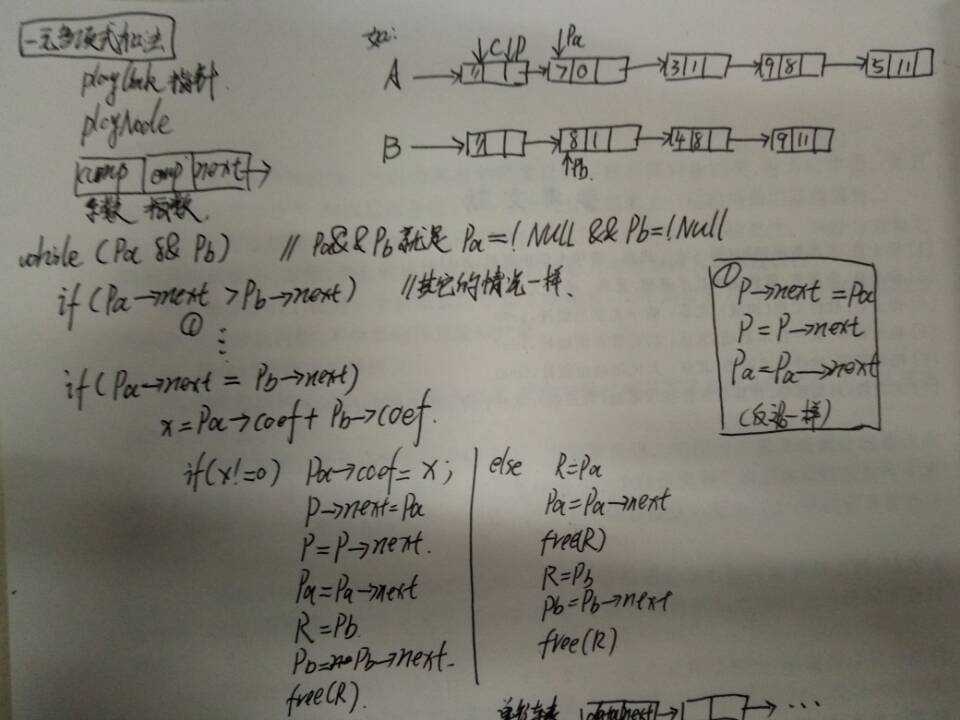 一元多项式加法
ploylink 指针
ployNode
comp emp next
系数 指数
如:
C P Pa
A 7 0 3 1 9 8 5 11
B 8 1 4 8 9 11
Pb
while (Pa && Pb) // Pa&&Pb就是 Pa=!Null && Pb=!Null
if (Pa→next >Pb→next) //其它的情况一样、
①
if(Pa→next = Pb→next)
x=Pa→coef+Pb→coef.
① P→next=Pa
P=P→next
Pa=Pa→next
(反过一样)
if(x!=0) Pa→coef=x;
P→next=Pa
P=P→next.
Pa=Pa→next
R=Pb
Pb=Pb→next.
free(R).
else R=Pa
Pa=Pa→next
free(R)
R=Pb
Pb=Pb→next
free(R)
data next → ...